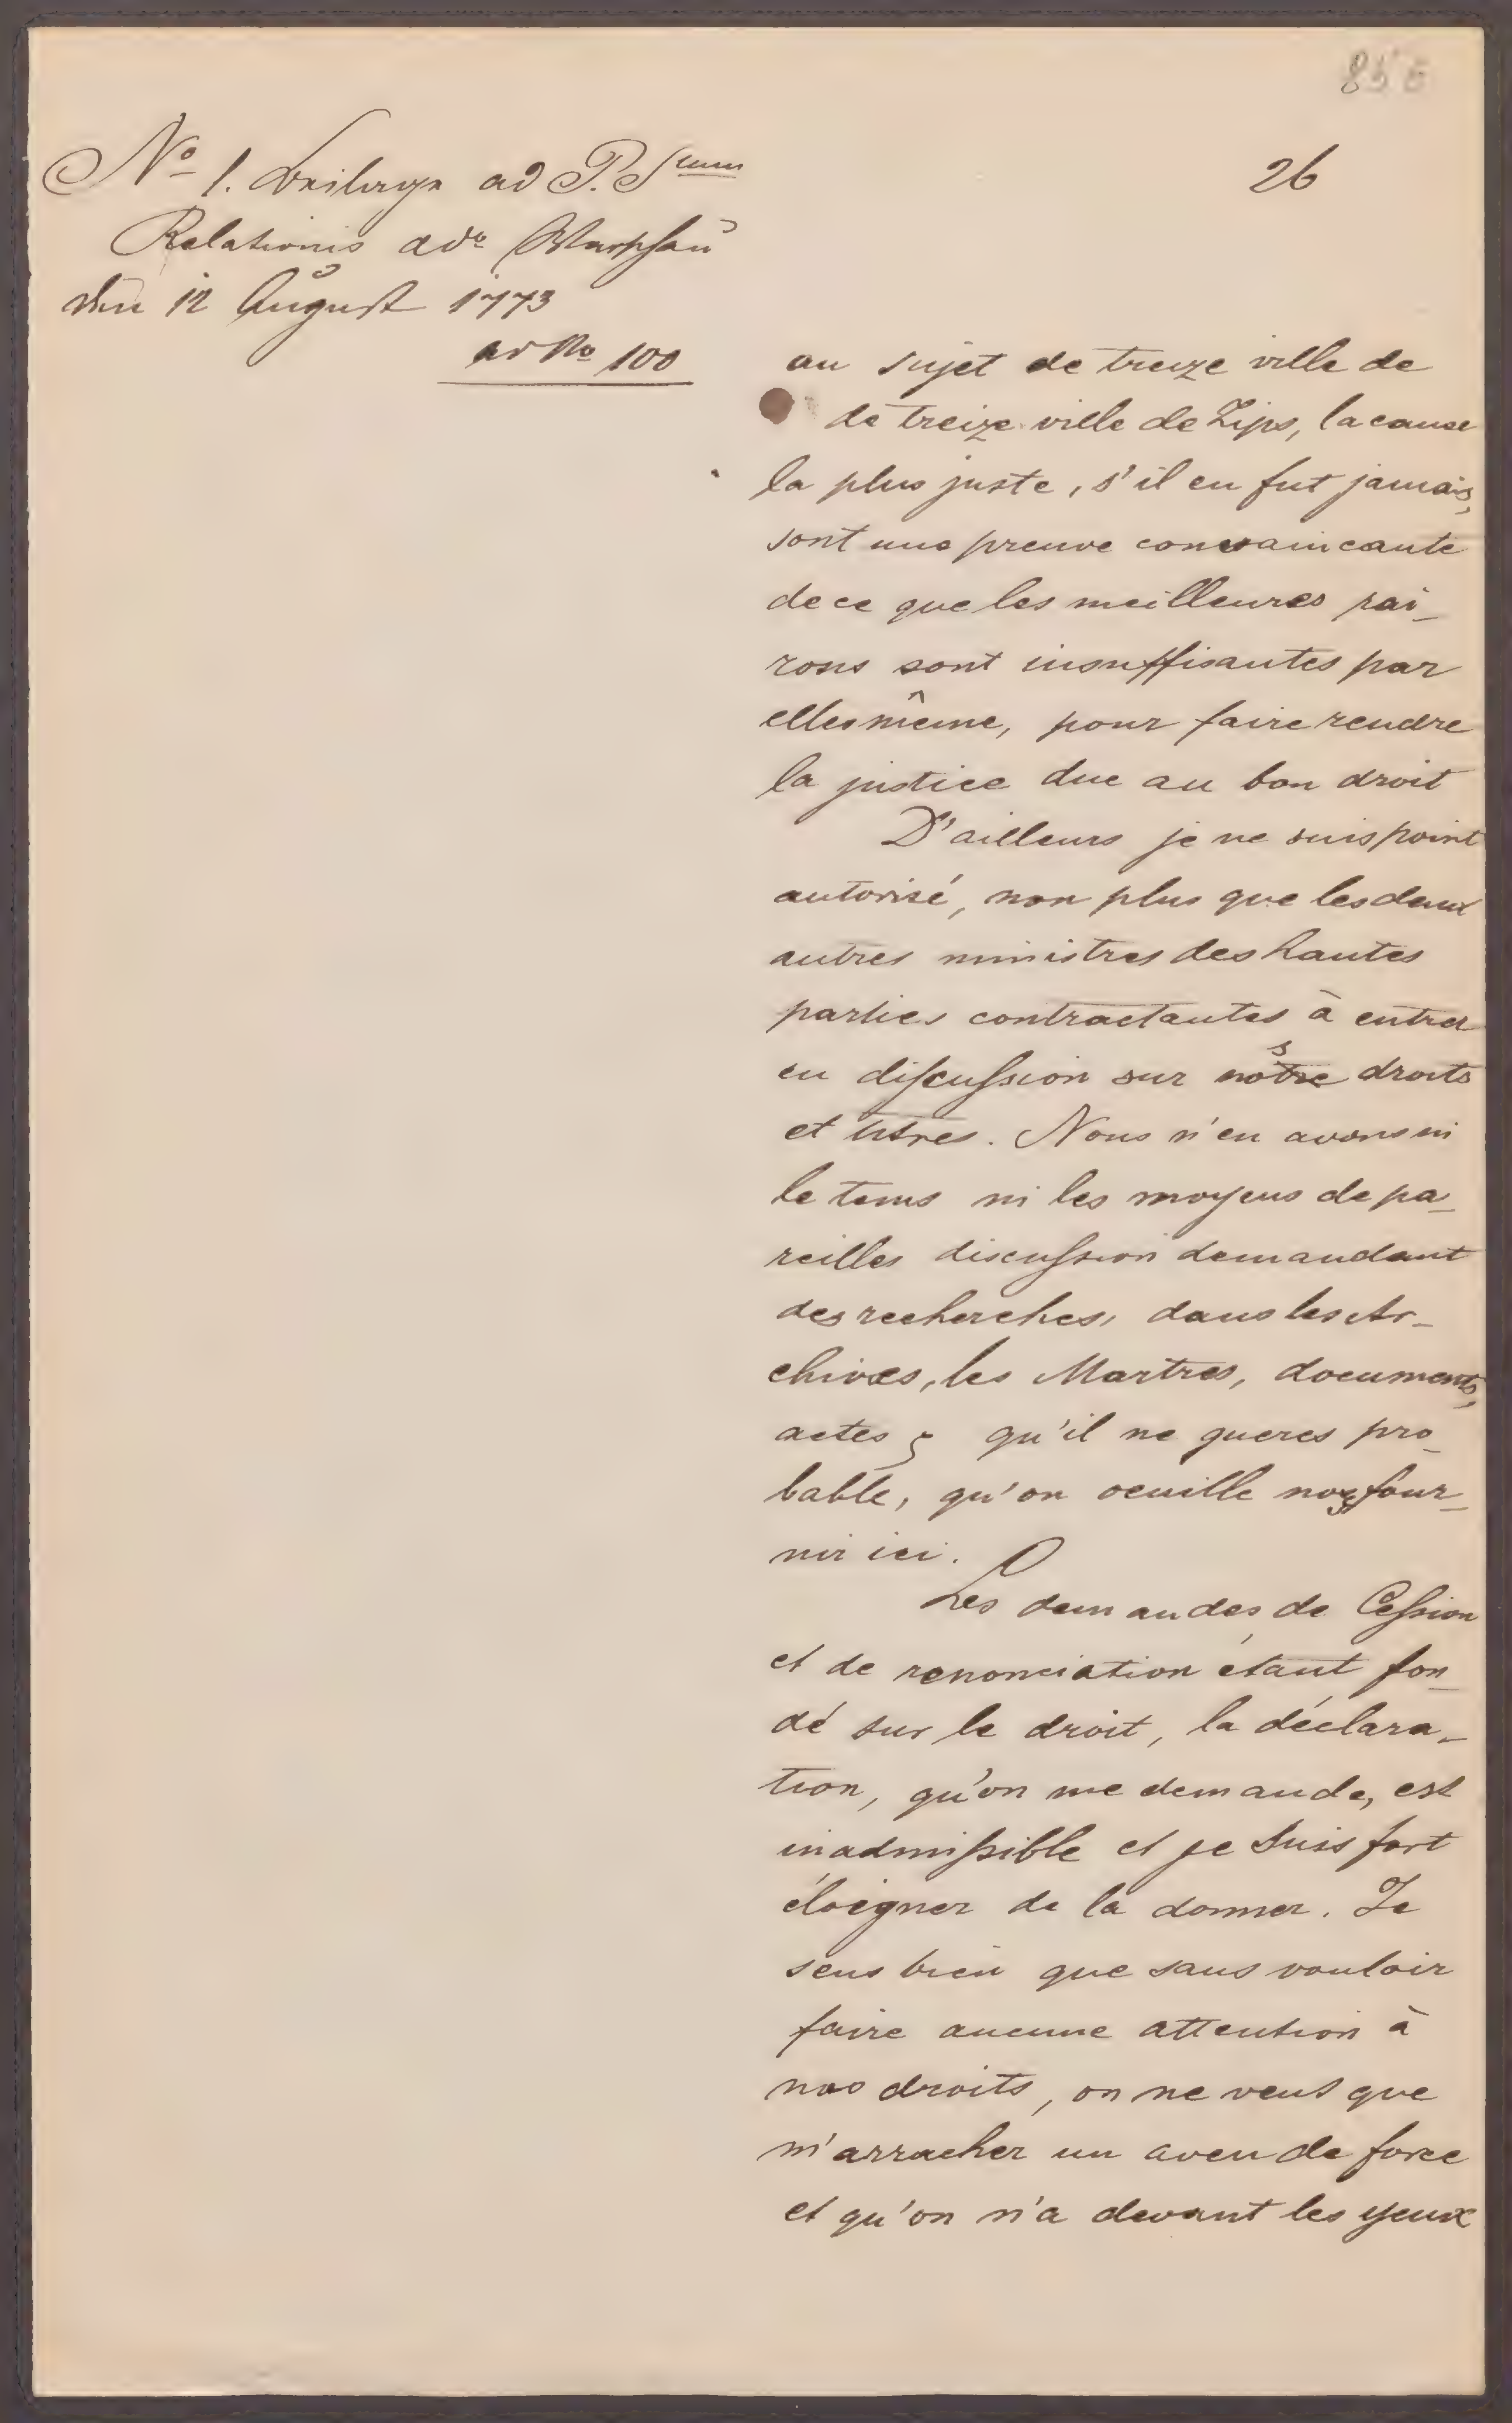 26
No 1. Beilage ad P. Sum
Relationis ddo Warschau
den 12 August 1773
ad No 100
au sujet de treize ville de
de treize ville de Zips, la cause
la plus juste, s'il en fut jamais,
sont une preuve convaincante
de ce que les meilleures rai_
sons sont insuffisantes par
elles même, pour faire rendre
la justice due au bon droit
D'ailleurs je ne suis point
autorisé, non plus que les deux
autres ministres des hautes
parties contractantes à entrer
en discussion sur nos droits
et titres. Nous n'en avons ni
le tems ni les moyens de pa_
reilles discussion demandant
des recherches, dans les Ar_
chives, les Martres, documents,
actes qu'il ne gueres pro_
bable, qu'on veuille nos four_
nir ici.
Les demandes de Cession
et de renonciation étant fon_
dé sur le droit, la déclara_
tion, qu'on me demande, est
inadmissible et je suis fort
éloigner de la donner. Je
sens bien que sans vouloir
faire aucune attention à
nos droits, on ne veut que
m'arracher un aveu de force
et qu'on n'a devant les yeux